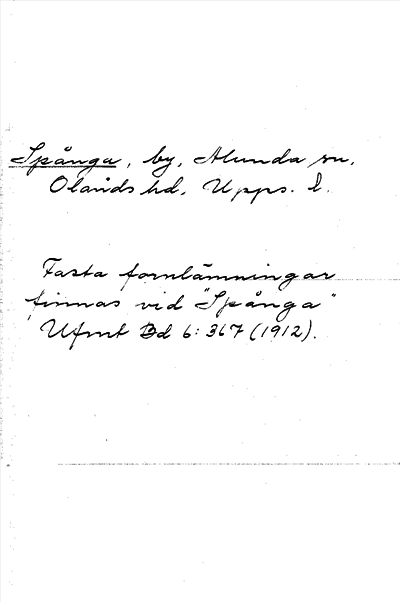 Spånga, by, Alunda sn,
Olands hd, Upps. l.
Fasta fornlämningar
finnas vid "Spånga"
Ufmt Bd 6: 367 (1912).